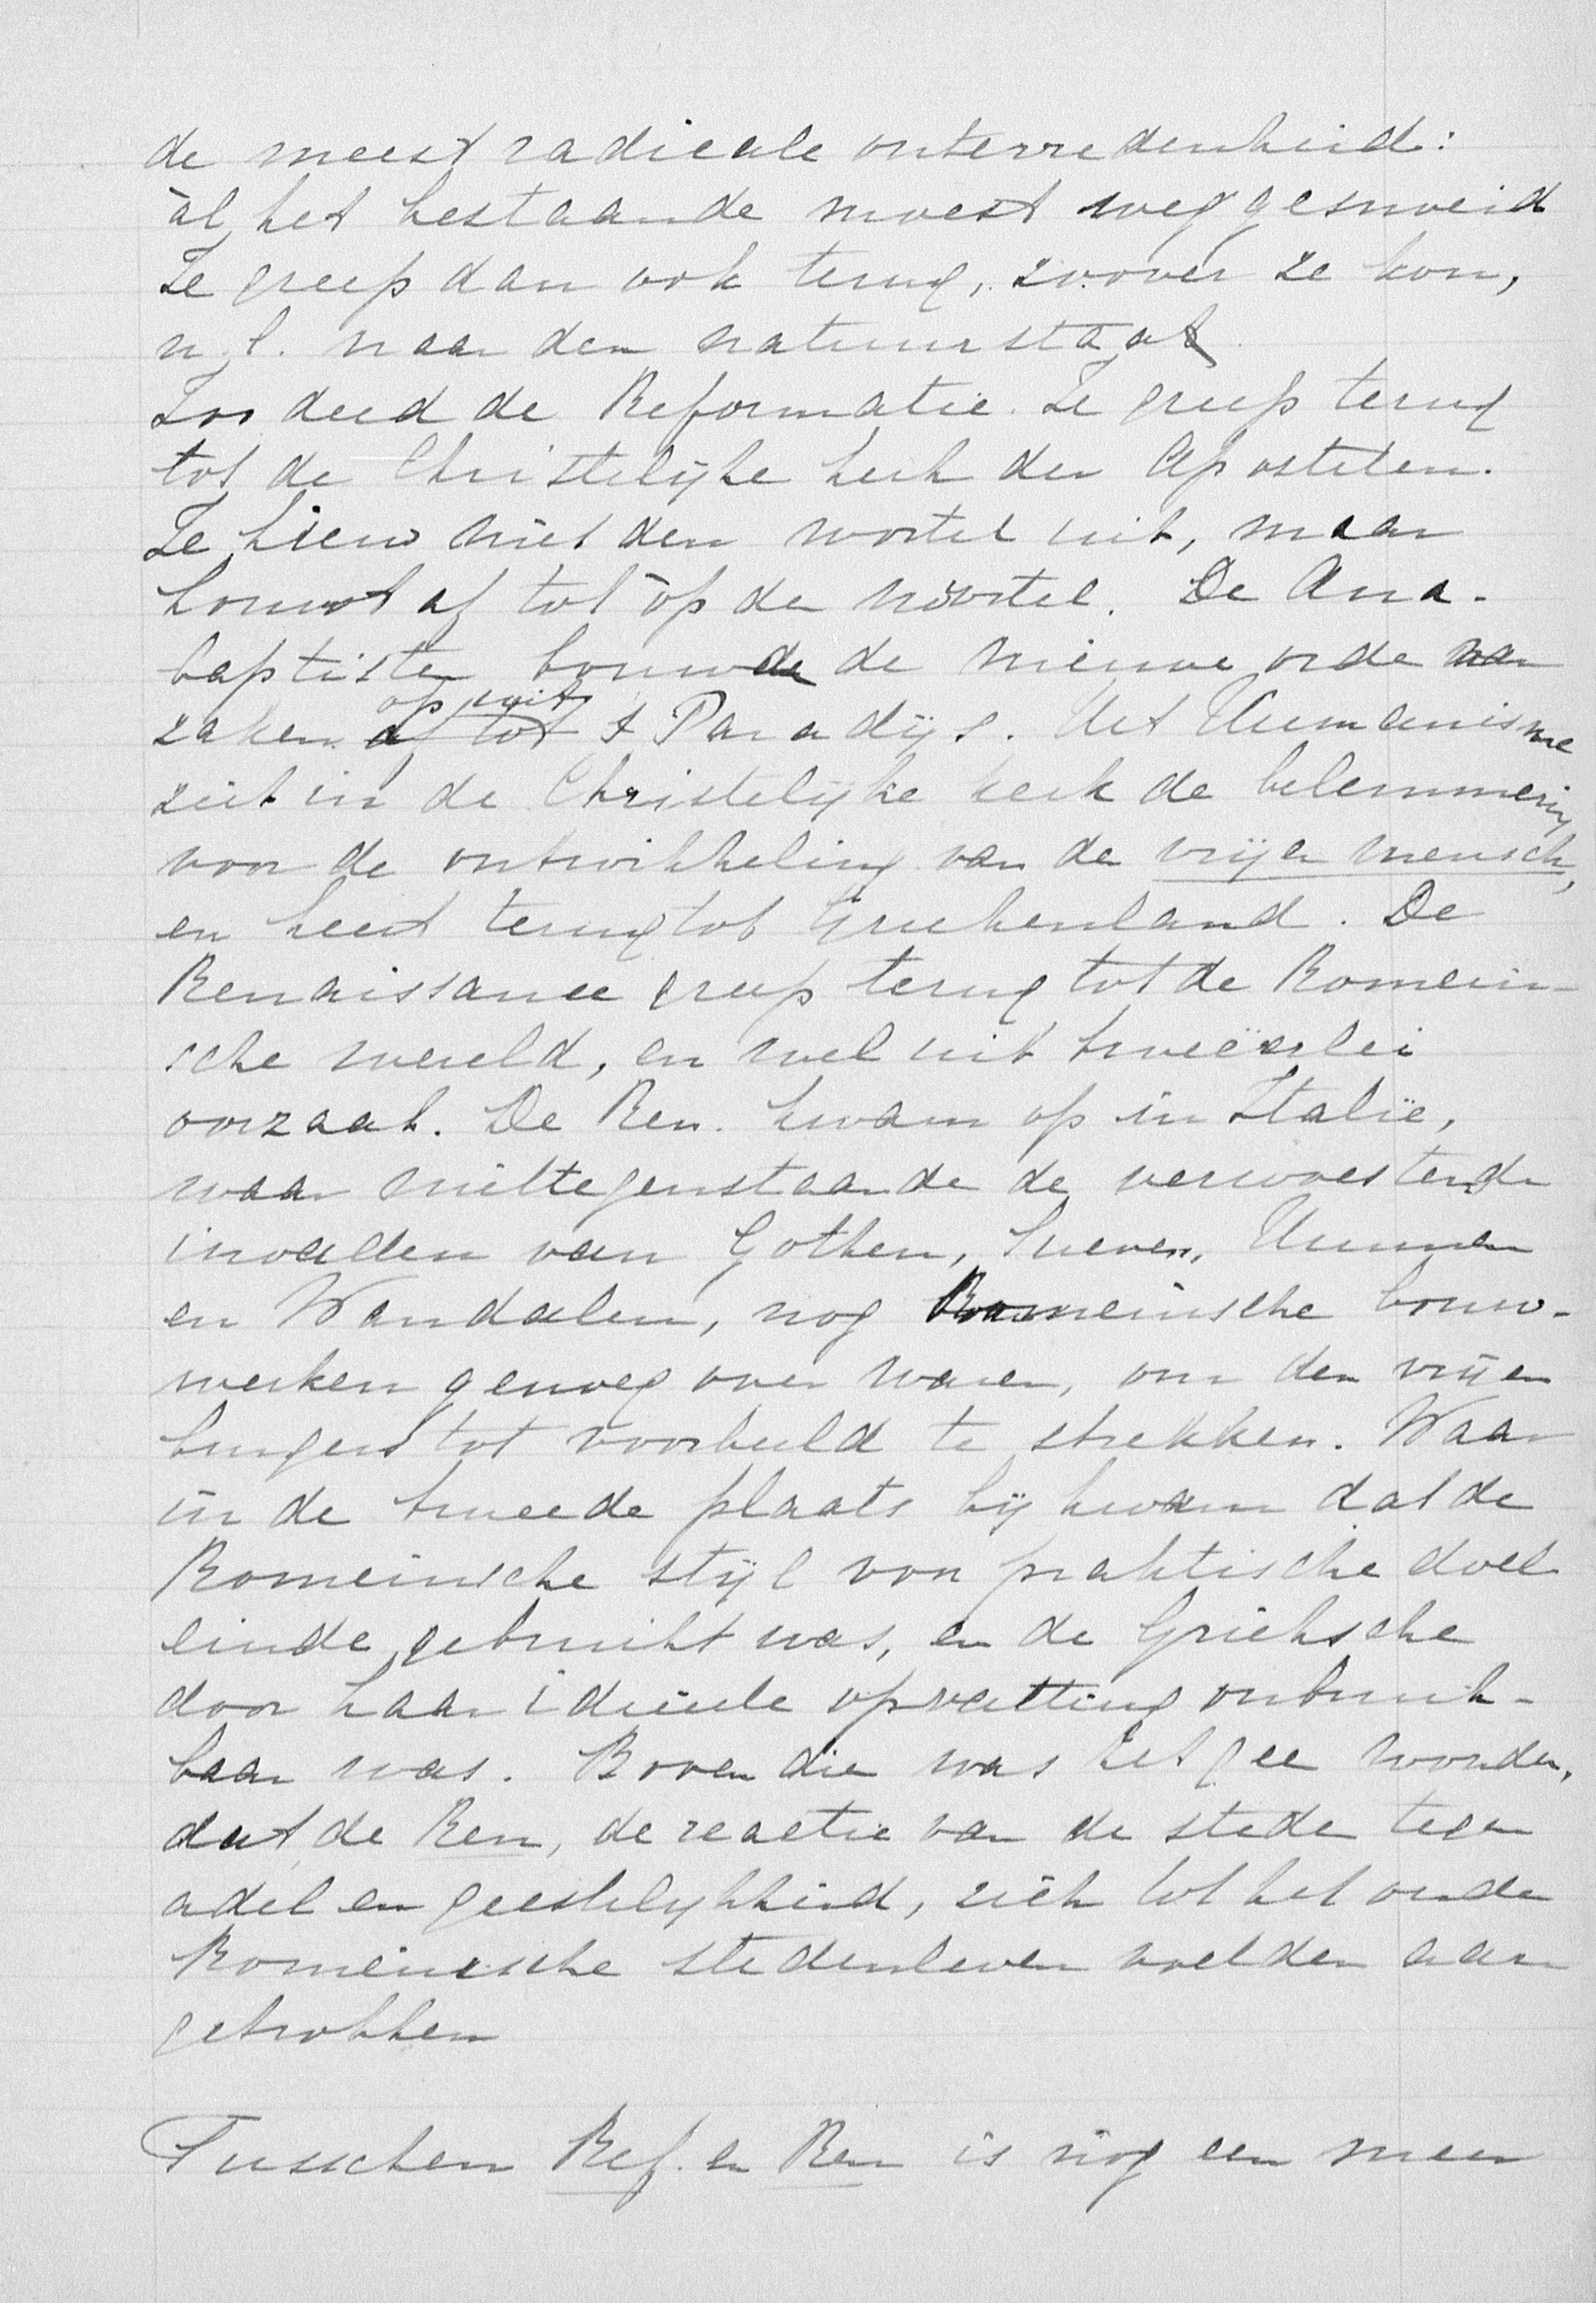 de meest radicale ontevredenheid:
àl het bestaande moest weggesnoeid
Ze greep dan ook terug, zoover ze kon,
n.l. naar den natuurstaat
Zoo deed de Reformatie. Ze greep terug
tot de Christelijke kerk der Apostelen.
Ze hieuw niet den wortel uit, maar
houwt af tot òp de wortel. De Ana-
baptisten bouwde de nieuwe orde van
zaken af tot op uit 't Paradijs. Het Humanisme
ziet in de Christelijke kerk de belemmering
voor de ontwikkeling van de vrijen mensch,
en keert terug tot Griekenland. De
Renaissance greep terug tot de Romein-
sche wereld, en wel uit tweeërlei
oorzaak. De Ren. kwam op in Italië,
waar niettegenstaande de verwoestende
invallen van Gothen, Sueven, Hunnen
en Wandalen, nog Romeinsche bouw-
werken genoeg over waren, om den vrijen
burgers tot voorbeeld te strekken. Waar
in de tweede plaats bij kwam dat de
Romeinsche stijl voor praktische doel
einde gebruikt was, en de Grieksche
door haar ideëele opvatting onbruik-
baar was. Boven die was het gee wonder,
dat de Ren, de reactie van de steden tegen
adel en geestelijkheid, zich tot het oude
Romeinsche stedenleven voelden aan
getrokken
Tusschen Ref. en Ren is nog een meer